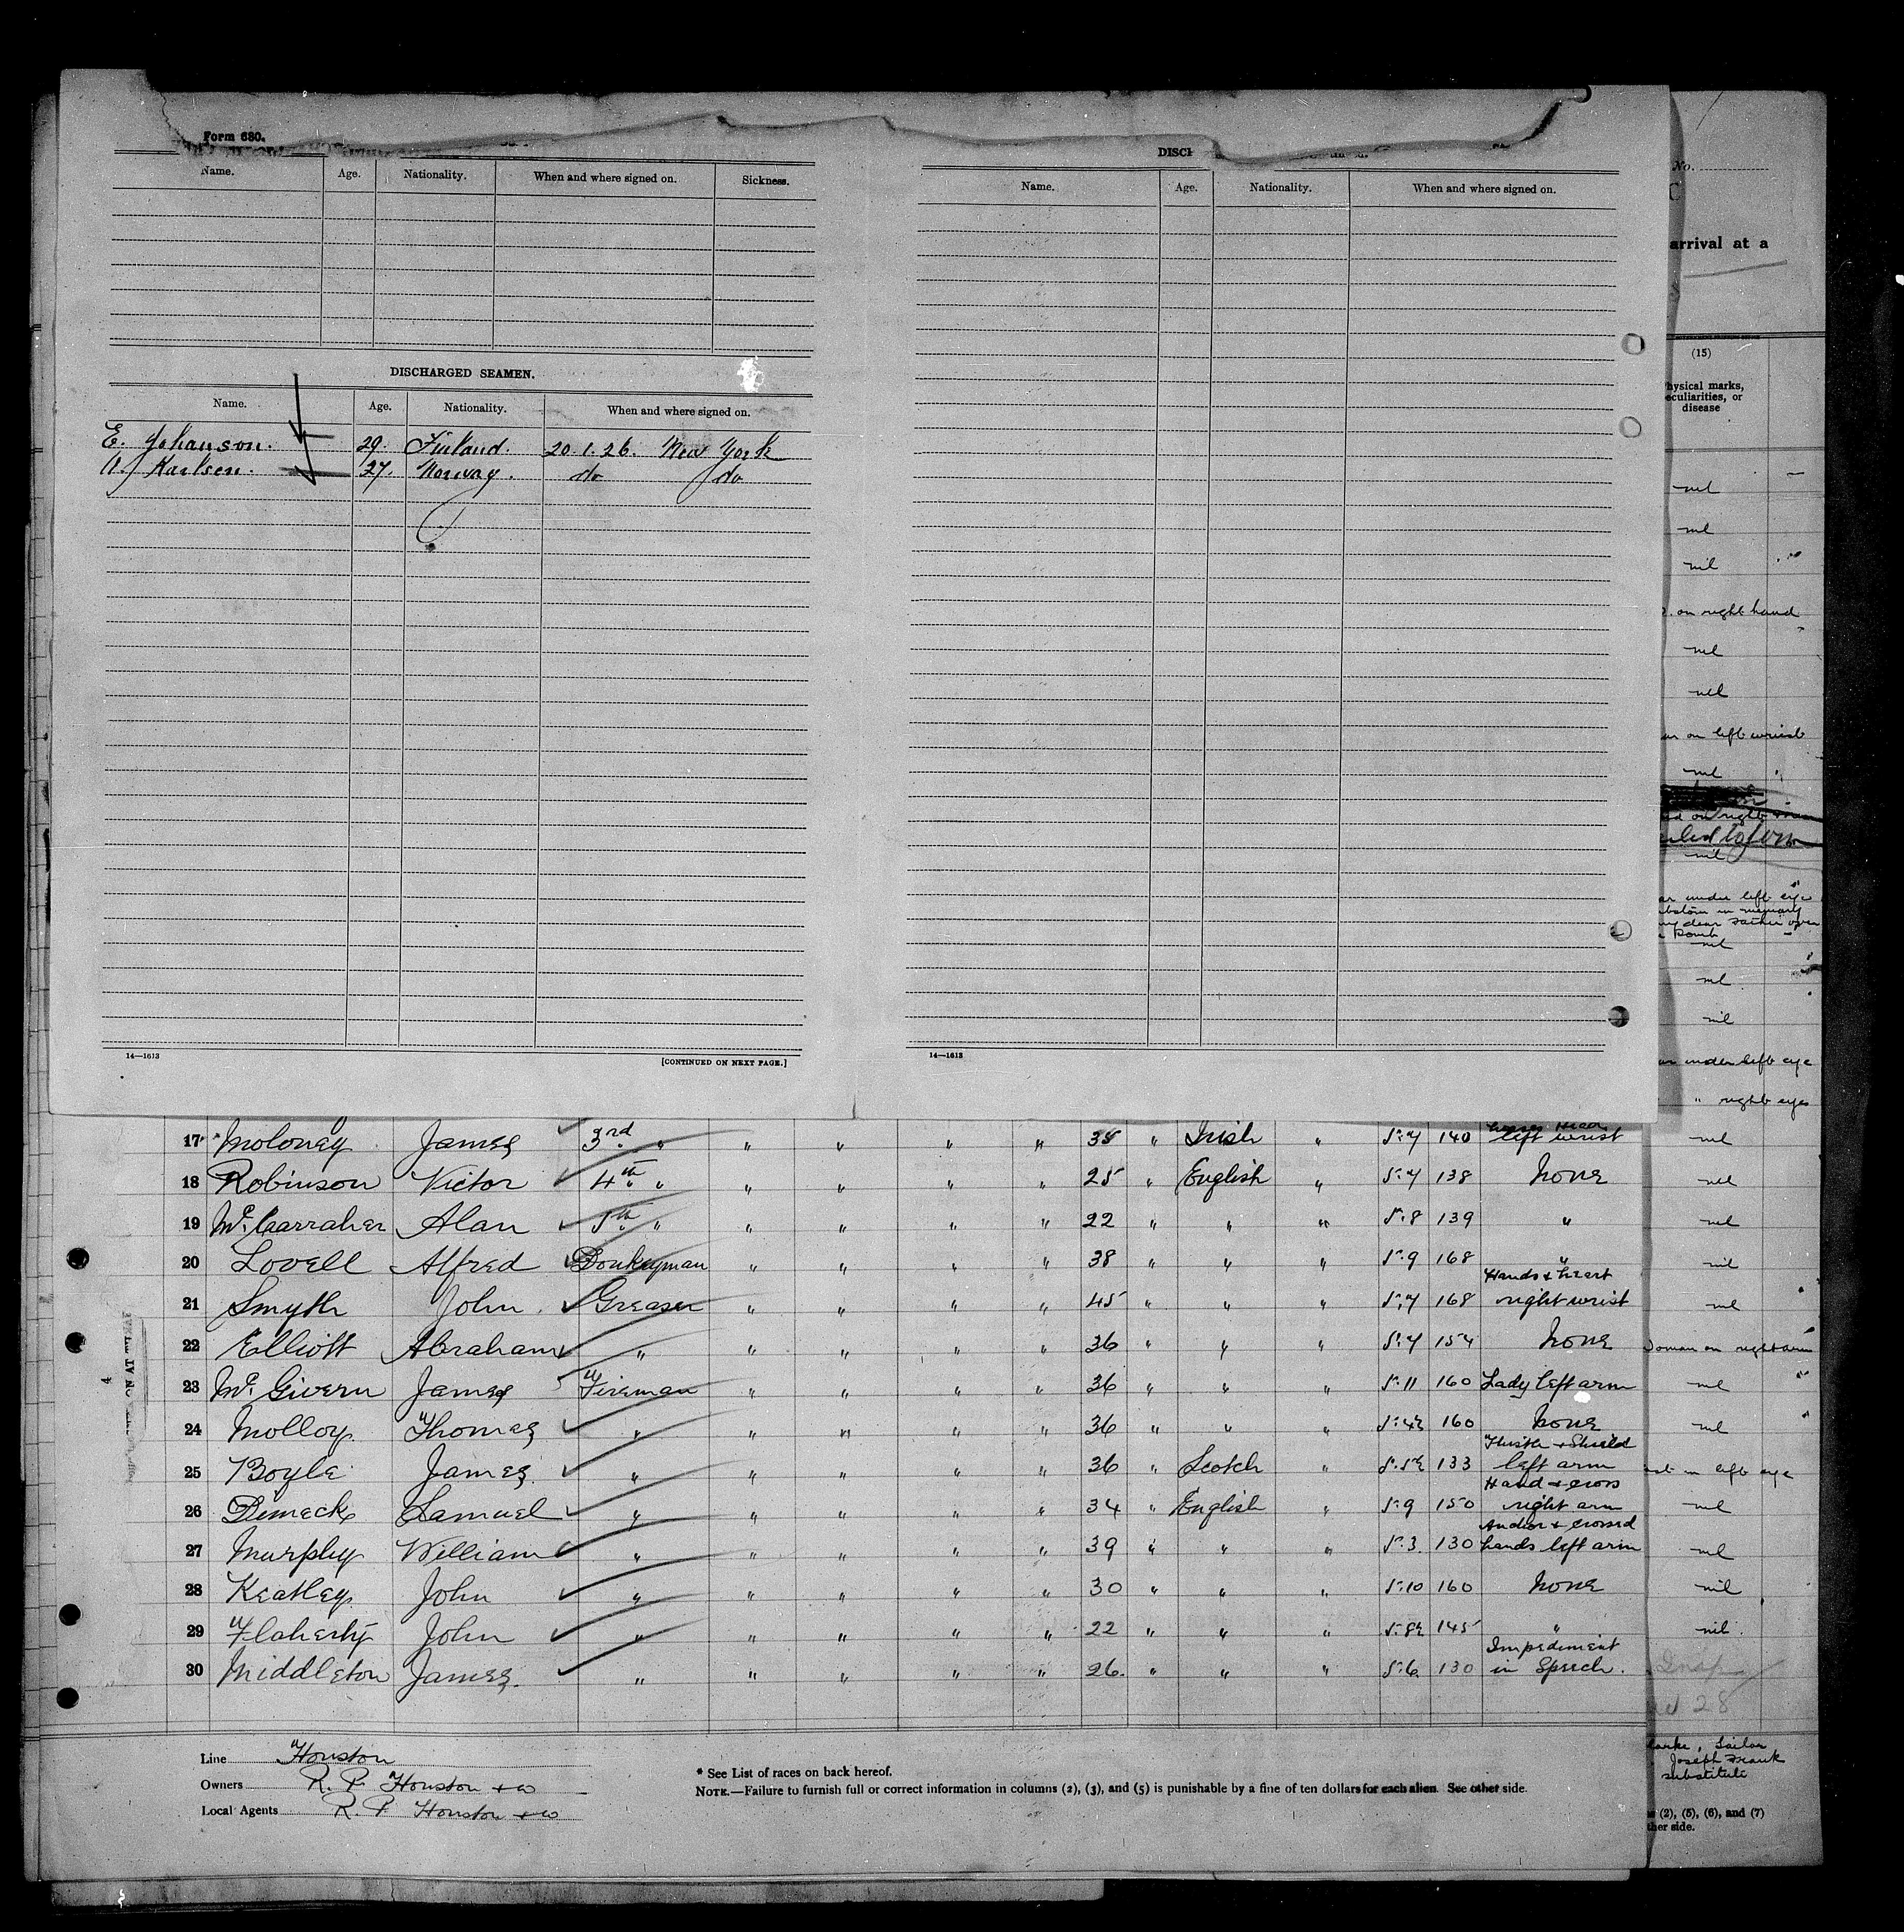 Form 680.
Name. Age. Nationality. When and where signed on. Sickness.
DISCHARGED SEAMEN.
Name. Age. Nationality. When and where signed on.
E. Johanson. 29. Finland. 20.1.26. New York
Karlsen. 27. Norway. do do
14—1613 [CONTINUED ON NEXT PAGE.]
DISCH
Name. Age. Nationality. When and where signed on.
14—1613
No.
arrival at a
(15)
hysical marks,
eculiarities, or
disease
nil
nil
nil
on right hand
nil
nil
on left wrist
nil
on right
nil
under left eye
in memory
dear Father over
nil
nil
nil
under left eye
" right eye
17 Moloney James 3rd " " " " " 35 " Irish " 5.7 140 left wrist nil
18 Robinson Victor 4th " " " " " 25 " English " 5.7 138 None nil
19 McCarraher Alan 5th " " " " " 22 " " " 5.8 139 " nil
20 Lovell Alfred Donkeyman " " " " 38 " " " 5.9 168 " nil
21 Smyth John. Greaser " " " " 45 " " " 5.7 168 Hands & heart
right wrist nil
22 Elliott Abraham " " " " " 36 " " " 5.7 154 None Woman on right arm
23 McGivern James Fireman " " " " 36 " " " 5.11 160 Lady left arm nil
24 Molloy Thomas " " " " " 36 " " " 5.4½ 160 None nil
25 Boyle James " " " " " 36 " Scotch " 5.5½ 133 Thistle & Shield
left arm in left eye
26 Dimeck Samuel " " " " " 34 " English " 5.9 150 Hand & cross
right arm nil
27 Murphy William " " " " " 39 " " " 5.3 130 Anchor & crossed
hands left arm nil
28 Keatley John " " " " " 30 " " " 5.10 160 None nil
29 Flaherty John " " " " " 22 " " " 5.8½ 145 " nil
30 Middleton James " " " " " 26 " " " 5.6 130 Impediment
in Speech.
28
Line Houston
Owners R. P. Houston & Co
Local Agents R. P. Houston & Co
* See List of races on back hereof.
NOTE.—Failure to furnish full or correct information in columns (2), (3), and (5) is punishable by a fine of ten dollars for each alien. See other side.
larke, Sailor
Joseph Frank
substitute
(2), (5), (6), and (7)
ther side.